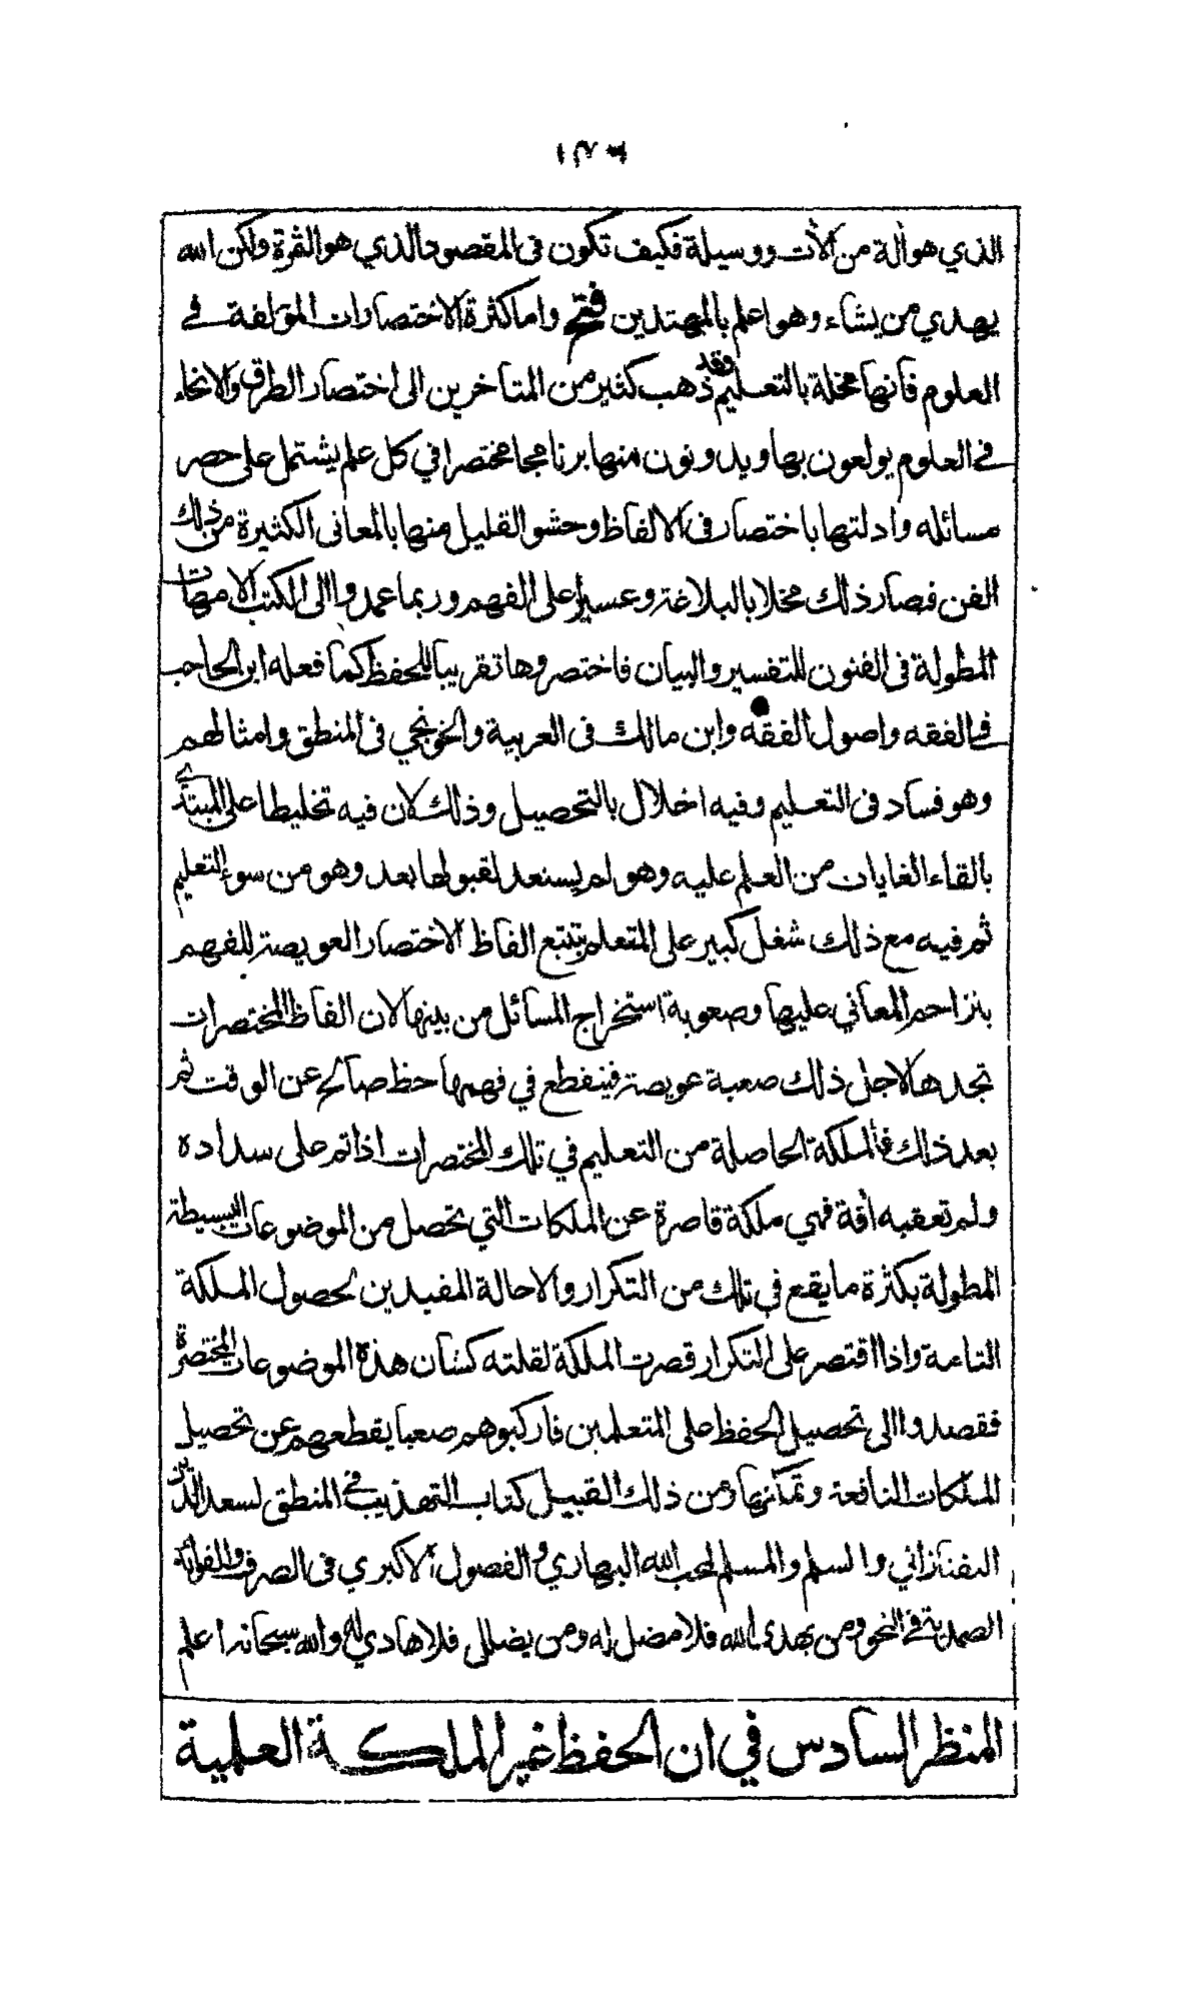 الذي هو ألة من الآت ووسيلة فكيف تكون في المقصود الذي هو الثمرة ولكن الله
يهدي من يشاء وهو اعلم بالمهتدين فتح واما كثرة الاختصارات المؤلفة في
العلوم فانها مخلة بالتعليم وقد ذهب كثير من المتاخرين الى اختصار الطرق والانحاء
في العلوم يولعون بها ويدونون منها برنامجا مختصرا في كل علم يشتمل على حصر
مسائله وادلتها باختصار في الالفاظ وحشو القليل منها بالمعاني الكثيرة من ذلك
الفن فصار ذلك مخلا بالبلاغة وعسيرا على الفهم وربما عمدوا الى الكتب الامهات
المطولة في الفنون للتفسير والبيان فاختصروها تقريبا للحفظ كما فعله ابن الحاجب
في الفقه واصول الفقه وابن مالك في العربية والخونجي في المنطق وامثالهم
وهو فساد في التعليم وفيه اخلال بالتحصيل وذلك لان فيه تخليطا على المبتدي
بالقاء الغايات من العلم عليه وهو لم يستعد لقبولها بعد وهو من سوء التعليم
ثم فيه مع ذلك شغل كبير على المتعلم بتتبع الفاظ الاختصار العويصة للفهم
بتزاحم المعاني عليها وصعوبة استخراج المسائل من بينها لان الفاظ المختصرات
تجدها لاجل ذلك صعبة عويصة فينقطع في فهمها حظ صالح عن الوقت ثم
بعد ذلك فالملكة الحاصلة من التعليم في تلك المختصرات اذا تم على سداده
ولم تعقبه أفة فهي ملكة قاصرة عن الملكات التي تحصل من الموضوعات البسيطة
المطولة بكثرة ما يقع في تلك من التكرار والاحالة المفيدين لحصول الملكة
التامة واذا اقتصر على التكرار قصرت الملكة لقلته كشان هذه الموضوعات المختصرة
فقصدوا الى تحصيل الحفظ على المتعلمين فاركبوهم صعبا يقطعهم عن تحصيل
الملكات النافعة وتمكنها ومن ذلك القبيل كتاب التهذيب في المنطق لسعد الدين
التفتازاني والسلم والمسلم لمحب الله البهاري والفصول الاكبري في الصرف والفوائد
الصمدية في النحو ومن يهده الله فلا مضل له ومن يضلل فلا هادي له والله سبحانه اعلم
المنظر السادس في ان الحفظ غير الملكة العلمية